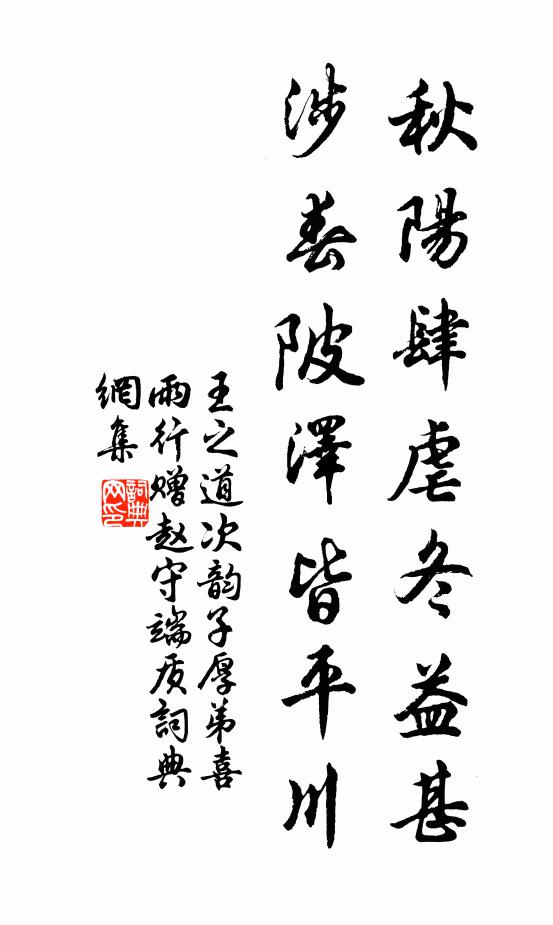 秋陽肆虐冬益甚
涉春陂澤皆平川
王之道次韵子厚弟喜
雨行赠赵守端质詞典
網集
詞典
网印